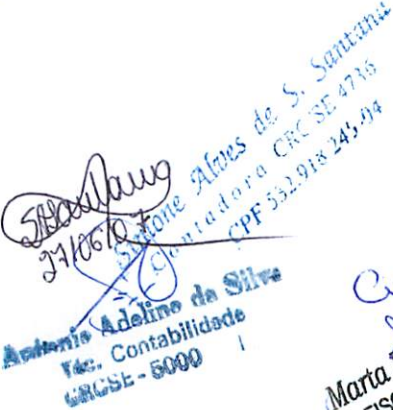 Simone Alves de S. Santana
Contadora CRC SE 4736
CPF 532.918.245-04
27/06/07
Antonio Adelino da Silva
Téc. Contabilidade
CRCSE - 5000
Marta